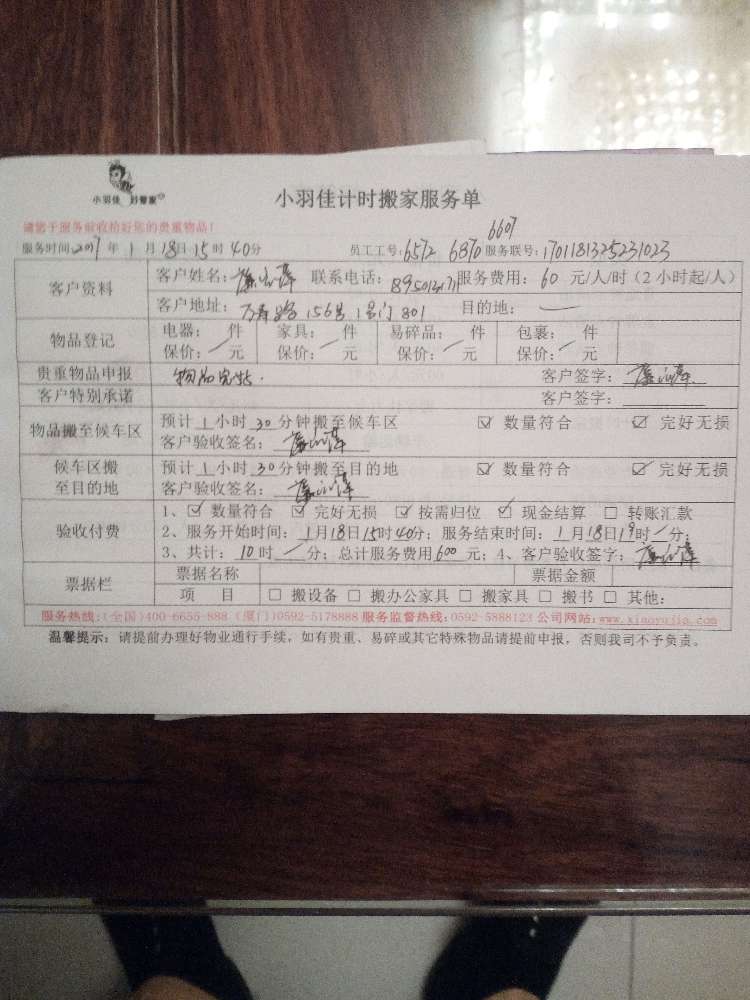 小羽佳 好管家
小羽佳计时搬家服务单
请您于服务前收拾好您的贵重物品！
6607
服务时间:2017年 1 月 18 日 15 时 40 分 员工工号: 6572 6870 服务联号: 17011813525231023
客户资料 客户姓名: 联系电话: 服务费用: 60 元/人/时（2 小时起/人）
客户地址: 万寿路 156号 1号门 801 目的地:
物品登记 电器: 件 家具: 件 易碎品: 件 包裹: 件
保价: 元 保价: 元 保价: 元 保价: 元
贵重物品申报 物品完好. 客户签字:
客户特别承诺 客户签字:
物品搬至候车区 预计 1 小时 30 分钟搬至候车区 ☑ 数量符合 ☑ 完好无损
客户验收签名:
候车区搬至目的地 预计 1 小时 30 分钟搬至目的地 ☑ 数量符合 ☑ 完好无损
客户验收签名:
验收付费 1、☑ 数量符合 ☑ 完好无损 ☑ 按需归位 ☑ 现金结算 □ 转账汇款
2、服务开始时间: 1月18日15时40分; 服务结束时间: 1月18日19时/分;
3、共计: 10 时 / 分; 总计服务费用600元; 4、客户验收签字:
票据栏 票据名称 票据金额
项 目 □ 搬设备 □ 搬办公家具 □ 搬家具 □ 搬书 □ 其他:
服务热线:(全国)400-6655-888 (厦门)0592-5178888 服务监督热线:0592-5888123 公司网站:www.xiaoyujia.com
温馨提示: 请提前办理好物业通行手续，如有贵重、易碎或其它特殊物品请提前申报，否则我司不予负责。